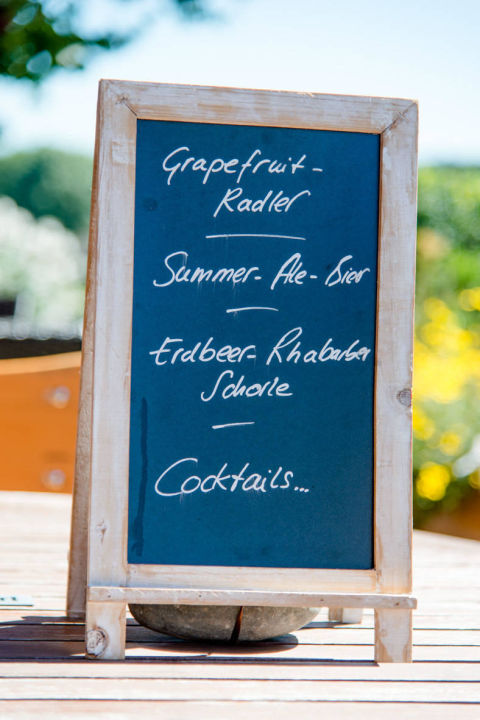 Grapefruit-
Radler
Summer-Ale-Bier
Erdbeer-Rhabarber
Schorle
Cocktails...